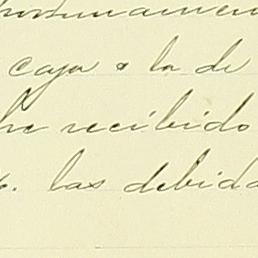 caja o la de
he recibido
las debida